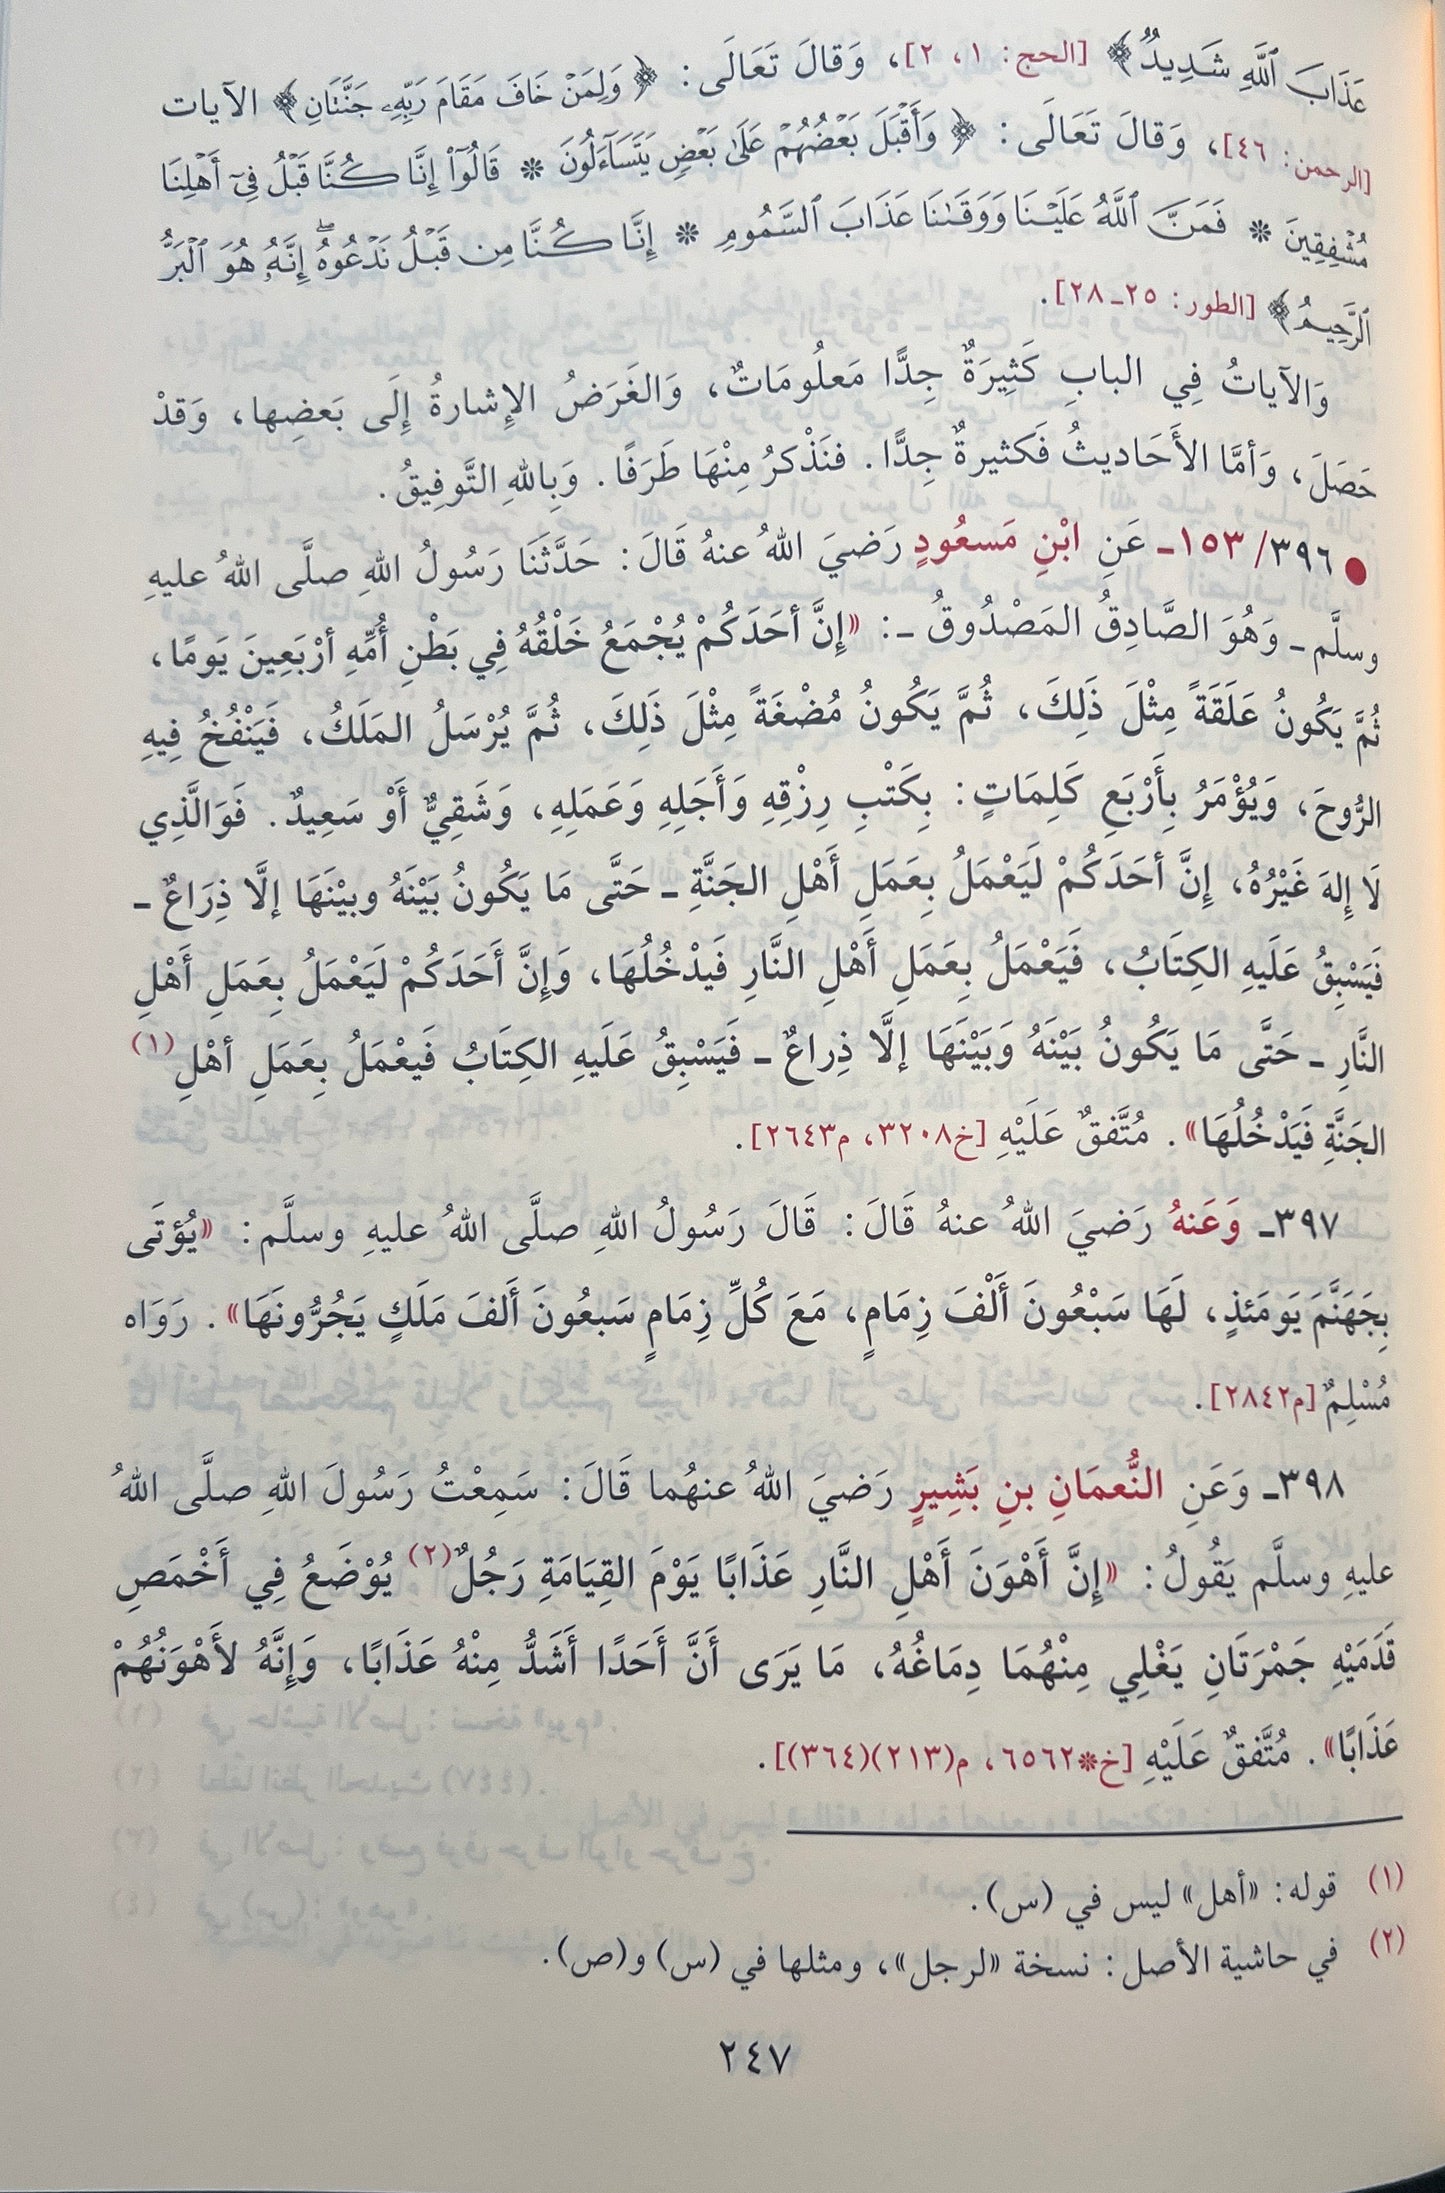 عَذَابَ ٱللَّهِ شَدِيدٌ﴾ [الحج: ١، ٢]، وَقالَ تَعَالَى: ﴿وَلِمَنْ خَافَ مَقَامَ رَبِّهِۦ جَنَّتَانِ﴾ الآيات
[الرحمن: ٤٦]، وَقالَ تَعَالَى: ﴿وَأَقْبَلَ بَعْضُهُمْ عَلَىٰ بَعْضٍ يَتَسَآءَلُونَ * قَالُوٓا۟ إِنَّا كُنَّا قَبْلُ فِىٓ أَهْلِنَا
مُشْفِقِينَ * فَمَنَّ ٱللَّهُ عَلَيْنَا وَوَقَىٰنَا عَذَابَ ٱلسَّمُومِ * إِنَّا كُنَّا مِن قَبْلُ نَدْعُوهُ ۖ إِنَّهُۥ هُوَ ٱلْبَرُّ
ٱلرَّحِيمُ﴾ [الطور: ٢٥ـ٢٨].
وَالآياتُ فِي البابِ كَثِيرَةٌ جِدًّا مَعلُومَاتٌ، وَالغَرَضُ الإِشارةُ إِلَى بَعضِها، وَقدْ
حَصَلَ، وَأمَّا الأَحَاديثُ فَكثيرةٌ جِدًّا. فنَذْكرُ مِنْهَا طَرَفًا. وَبِاللهِ التَّوفِيقُ.
● ٣٩٦/ ١٥٣ـ عَنِ ابْنِ مَسعُودٍ رَضيَ اللهُ عنهُ قَالَ: حَدَّثَنَا رَسُولُ اللهِ صلَّى اللهُ عليهِ
وسلَّم ـ وَهُوَ الصَّادِقُ المَصْدُوقُ ـ: «إِنَّ أحَدَكُمْ يُجْمَعُ خَلْقُهُ فِي بَطْنِ أُمِّهِ أرْبَعِينَ يَومًا،
ثُمَّ يَكُونُ عَلَقَةً مِثْلَ ذَلِكَ، ثُمَّ يَكُونُ مُضْغَةً مِثْلَ ذَلِكَ، ثُمَّ يُرْسَلُ المَلَكُ، فَيَنْفُخُ فِيهِ
الرُّوحَ، وَيُؤْمَرُ بِأَرْبَعِ كَلِمَاتٍ: بِكَتْبِ رِزْقِهِ وَأَجَلِهِ وَعَمَلِهِ، وَشَقِيٌّ أَوْ سَعِيدٌ. فَوَالَّذِي
لَا إِلهَ غَيْرُهُ، إِنَّ أحَدَكُمْ لَيَعْمَلُ بِعَمَلِ أَهْلِ الجَنَّةِ ـ حَتَّى مَا يَكُونُ بَيْنَهُ وبيْنَهَا إلَّا ذِرَاعٌ ـ
فَيَسْبِقُ عَلَيهِ الكِتَابُ، فَيَعْمَلُ بِعَمَلِ أَهْلِ النَّارِ فَيدْخُلُهَا، وَإِنَّ أَحَدَكُمْ لَيَعْمَلُ بِعَمَلِ أَهْلِ
النَّارِ ـ حَتَّى مَا يَكُونُ بَيْنَهُ وَبَيْنَهَا إلَّا ذِراعٌ ـ فَيَسْبِقُ عَلَيهِ الكِتَابُ فَيعْمَلُ بِعَمَلِ أهْلِ(١)
الجَنَّةِ فَيَدْخُلُهَا». مُتَّفقٌ عَلَيْهِ [خ٣٢٠٨، م٢٦٤٣].
٣٩٧ـ وَعَنهُ رَضيَ اللهُ عنهُ قَالَ: قَالَ رَسُولُ اللهِ صلَّى اللهُ عليهِ وسلَّم: «يُؤتَى
بِجَهَنَّمَ يَومَئذٍ، لَهَا سَبْعُونَ أَلْفَ زِمَامٍ، مَعَ كُلِّ زِمَامٍ سَبعُونَ أَلفَ مَلَكٍ يَجُرُّونَهَا». رَوَاه
مُسْلِمٌ [م٢٨٤٢].
٣٩٨ـ وَعَنِ النُّعمَانِ بنِ بَشِيرٍ رَضيَ اللهُ عنهُما قَالَ: سَمِعْتُ رَسُولَ اللهِ صلَّى اللهُ
عليهِ وسلَّم يَقُولُ: «إِنَّ أَهْوَنَ أَهْلِ النَّارِ عَذَابًا يَوْمَ القِيَامَةِ رَجُلٌ(٢) يُوْضَعُ فِي أَخْمَصِ
قَدَمَيْهِ جَمْرَتَانِ يَغْلِي مِنْهُمَا دِمَاغُهُ، مَا يَرَى أَنَّ أَحَدًا أَشَدُّ مِنْهُ عَذَابًا، وَإِنَّهُ لأَهْوَنُهُمْ
عَذَابًا». مُتَّفقٌ عَلَيْهِ [خ*٦٥٦٢، م(٢١٣)(٣٦٤)].
(١) قوله: «أهل» ليس في (س).
(٢) في حاشية الأصل: نسخة «لرجل»، ومثلها في (س) و(ص).
٢٤٧